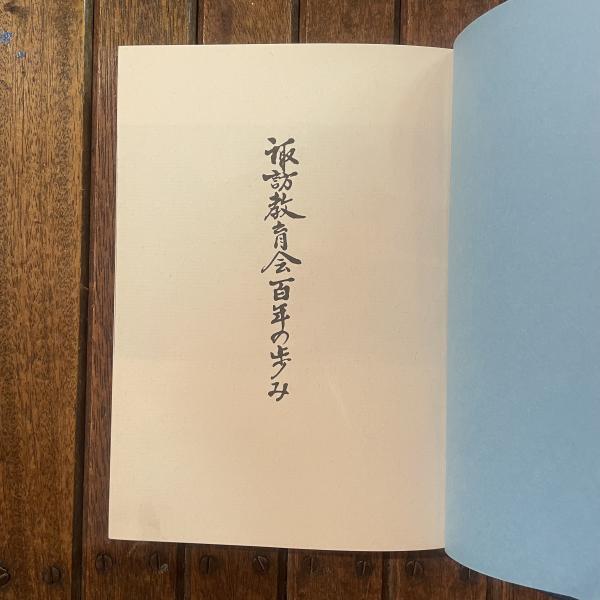 諏訪教育会百年の歩み